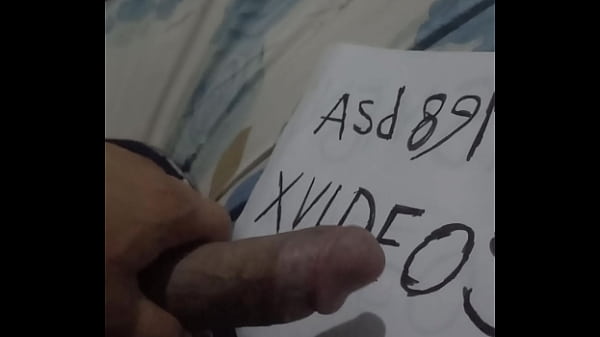 Asd891
XVIDEOS